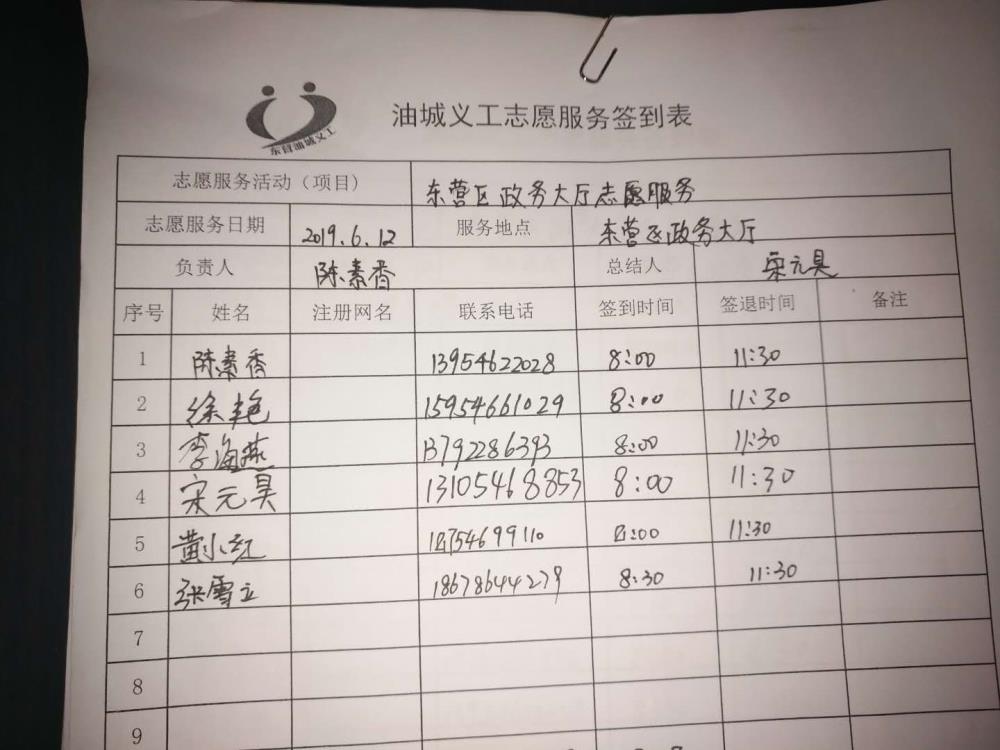 油城义工志愿服务签到表
东营油城义工
志愿服务活动（项目） 东营区政务大厅志愿服务
志愿服务日期 2019.6.12 服务地点 东营区政务大厅
负责人 陈素香 总结人 宋元昊
序号 姓名 注册网名 联系电话 签到时间 签退时间 备注
1 陈素香 13954622028 8:00 11:30
2 徐艳 15954661029 8:00 11:30
3 李海燕 13792286393 8:00 11:30
4 宋元昊 13105468853 8:00 11:30
5 黄小红 18754699110 8:00 11:30
6 张雪立 18678644279 8:30 11:30
7
8
9